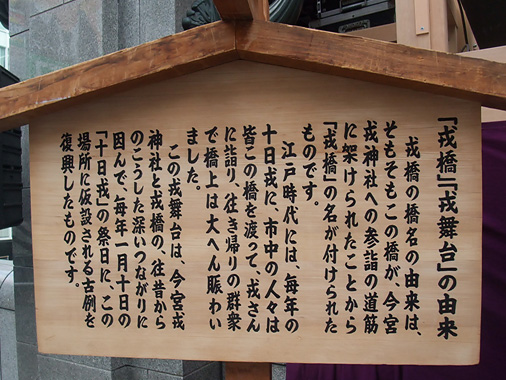 「戎橋」「戎舞台」の由来
戎橋の橋名の由来は、
そもそもこの橋が、今宮
戎神社への参詣の道筋
に架けられたことから
「戎橋」の名が付けられた
ものです。
江戸時代には、毎年の
十日戎に、市中の人々は
皆この橋を渡って、戎さん
に詣り、往き帰りの群衆
で橋上は大へん賑わい
ました。
この戎舞台は、今宮戎
神社と戎橋の、往昔から
のこうした深いつながりに
因んで、毎年一月十日の
「十日戎」の祭日に、この
場所に仮設される古例を
復興したものです。